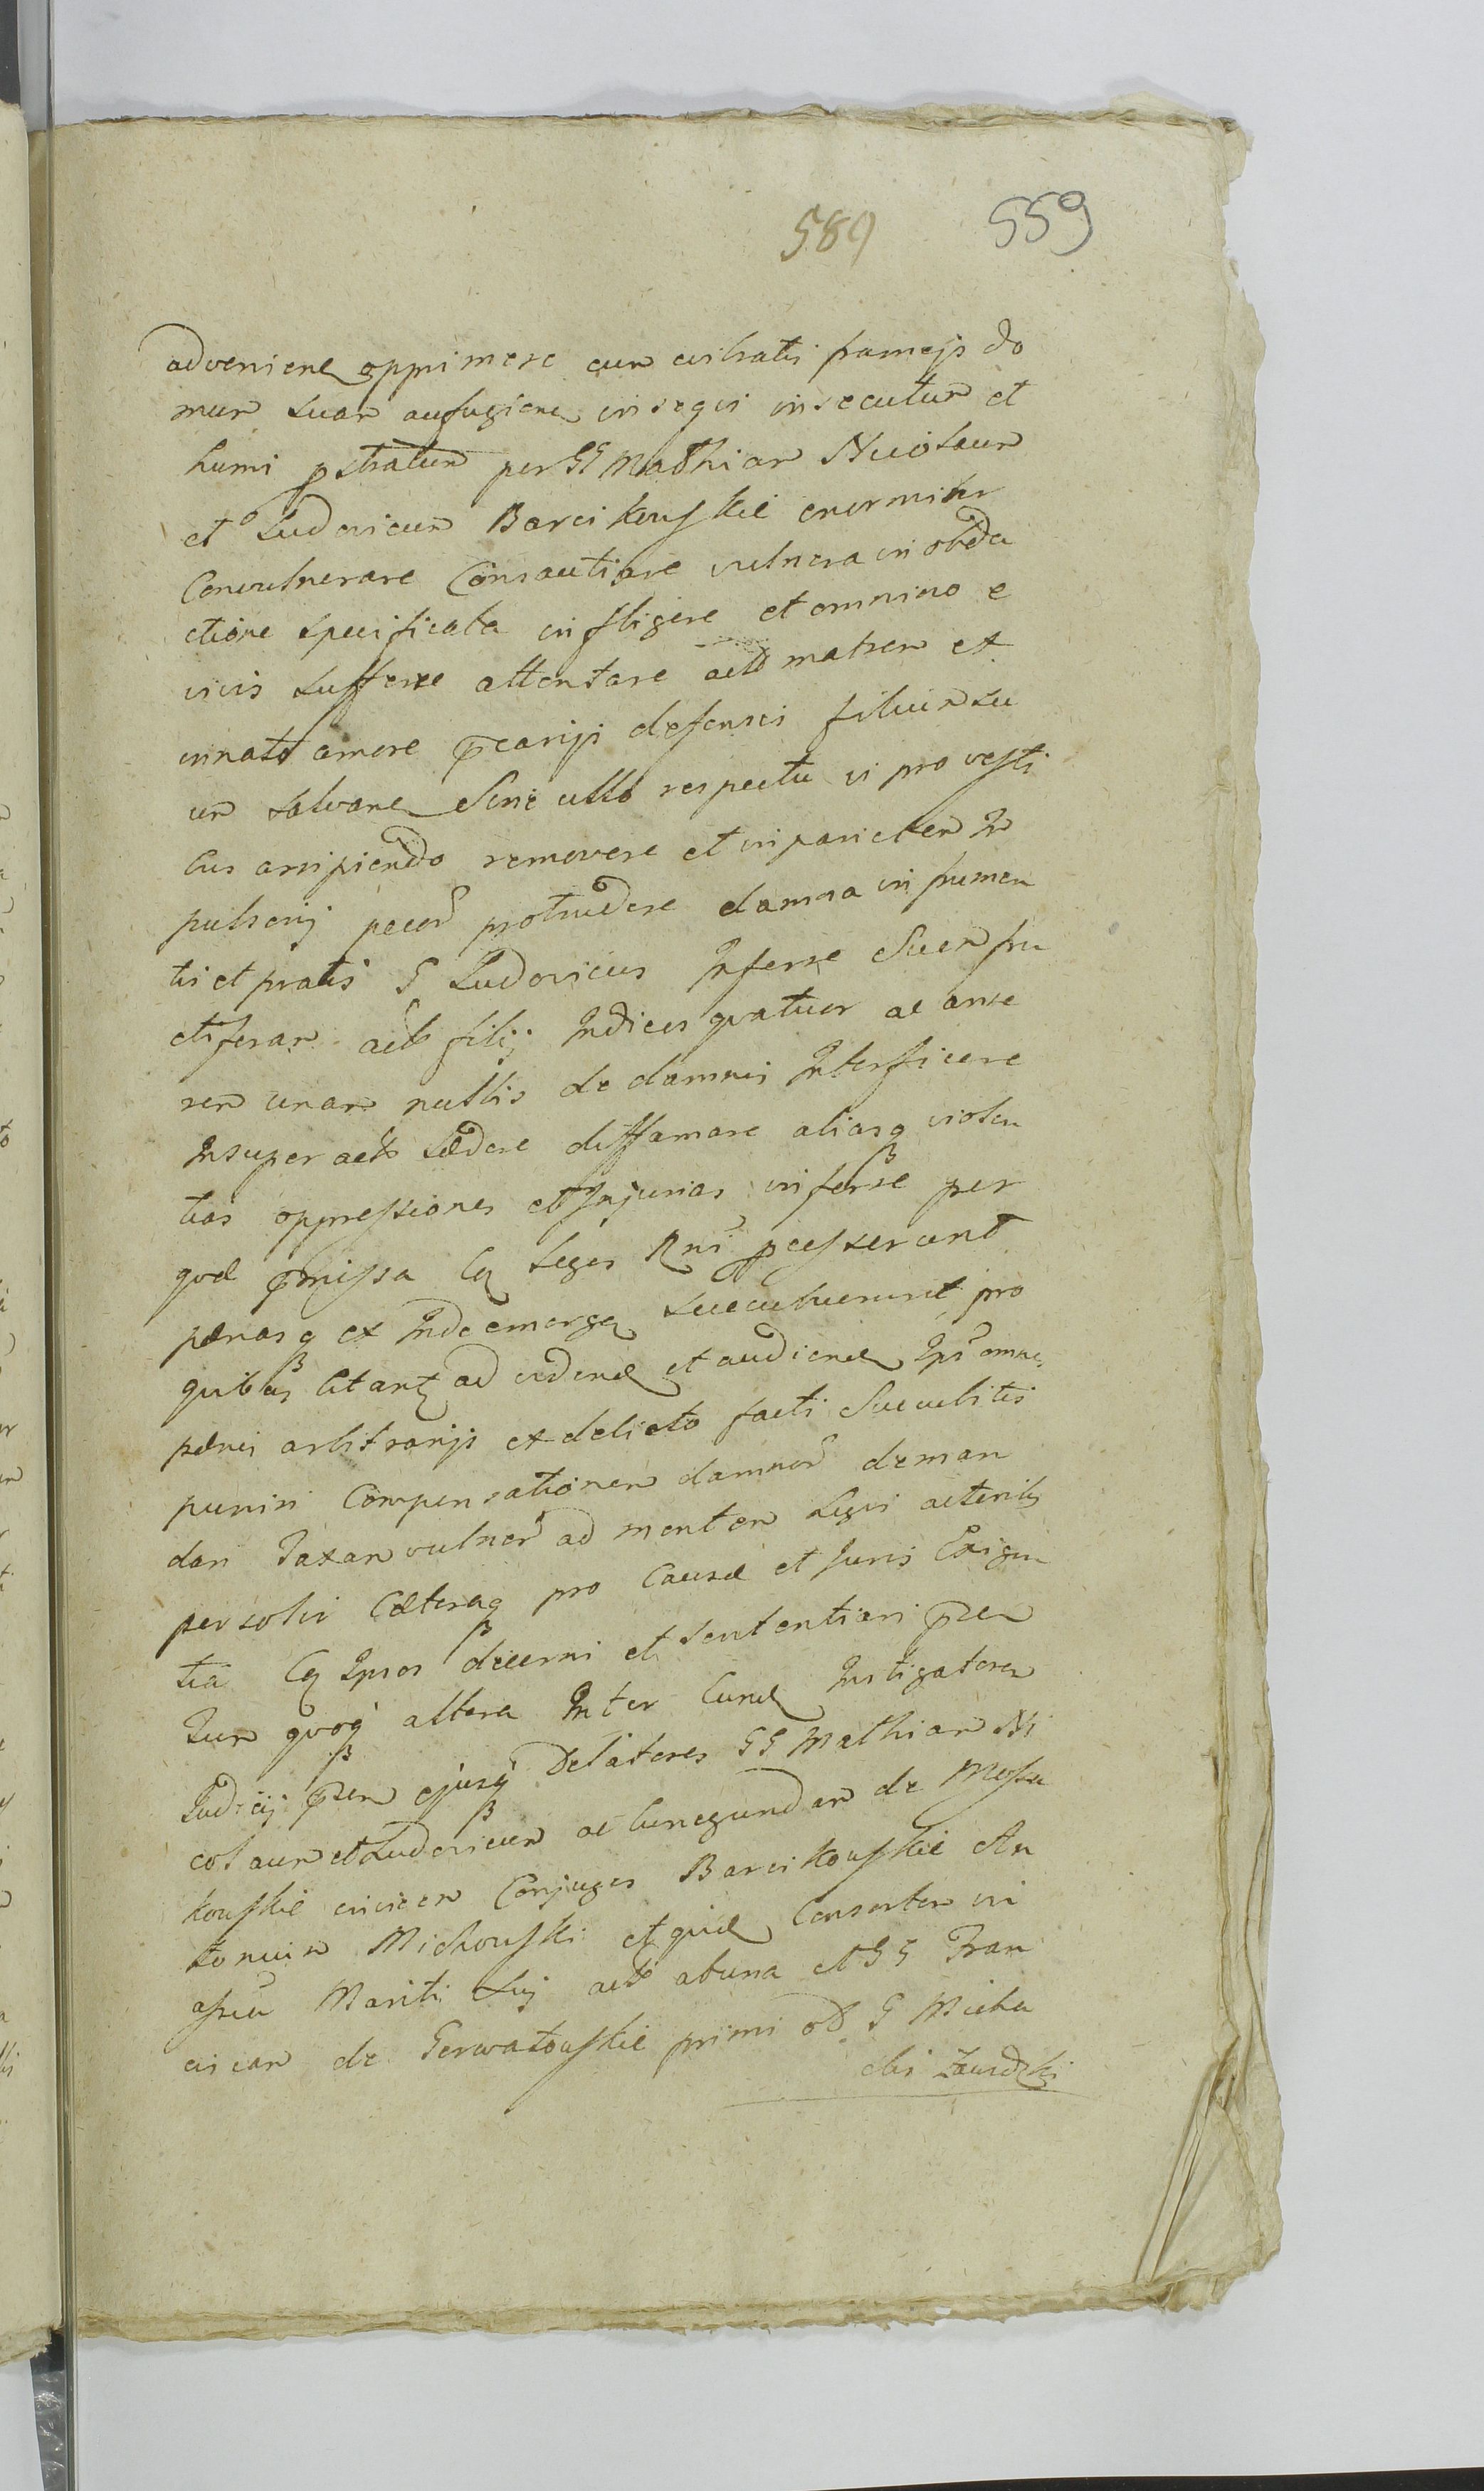 589 559
advenien opprimere cum evibratis frameis do
mum suam aufugien insequi insecutum et
humi pstratum per GG Mathiam Nicolaum
et Ludovicum Barcikouskie enormiter
Convulnerare Consautiare vulnera in obdu
ctione specificata infligere et omnino e
vivis sufferre attentare acto matrem ex
innato amore pcarissi defensi filium su
um salvan Sine ullo respectu vi pro vesti
bus arripiendo removere et in parietem Im
pulserij pecor protrudere damna in frumen
tis et pratis G Ludovicus Inferre Suem fru
ctiferam acto filij Indices quatuor ac anse
rem unam nullis de damnis Interficere
Insuper acto lædere diffamare aliasq violen
tias oppressiones et Injurias inferre per
quæ pmissa Cq leges Rni pcesserunt
pænasq ex Inde emergen succubuerunt pro
quibus Citantq ad viden et audien Ipsos omnes
pænis arbitrariis ex delicto facti Succubitis
puniri Compensationem damnor deman
dari Taxam vulner ad mentem Legis actoribq
persolvi Cæteraq pro Causæ et Juris Exigen
tia Cq Ipsos decerni et sententiari pzen
Tum quoq altera Inter Eund Instigatorem
Judicij pzen ejusq Delatores GG Mathiam Ni
colaum et Ludovicum ac Cunegundam de Mossa
kouskie invicem Conjuges Barcikouskie An
tonium Michouski et quid Consortem in
assia Mariti sui acto ab una et GG Fran
ciscam de Gerwatouskie primi olim G Micha
elis Zawadzki